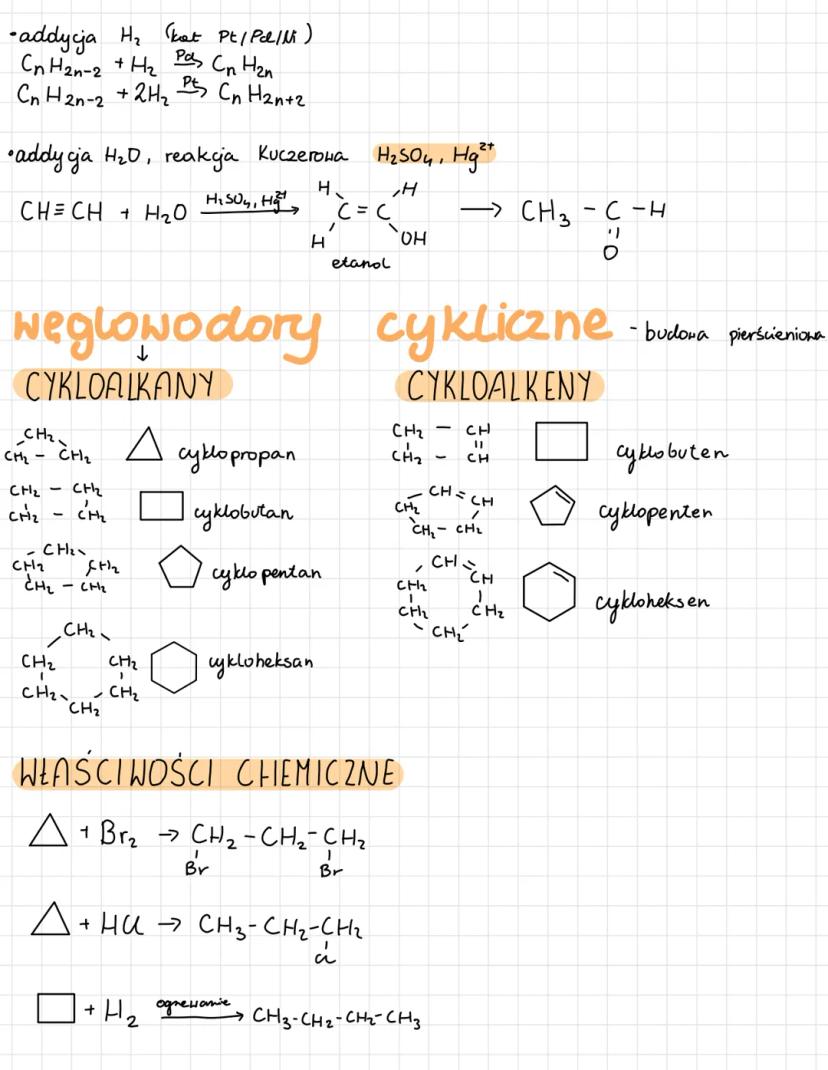 •addycja H₂ (kat Pt/Pd/Ni)
CnH2n-2 + H₂ Pd→ CnH2n
CnH2n-2 + 2H₂ Pt→ CnH2n+2
•addycja H₂O, reakcja Kuczerowa H₂SO₄, Hg²⁺
CH≡CH + H₂O H₂SO₄, Hg²⁺→ H H C=C H OH → CH₃-C-H
O
etanol
węglowodory cykliczne - budowa pierścieniowa
↓
CYKLOALKANY CYKLOALKENY
CH₂
CH₂ - CH₂ cyklopropan
CH₂ - CH₂ cyklobutan
CH₂ - CH₂
CH₂
CH₂ CH₂ cyklopentan
CH₂ - CH₂
CH₂
CH₂ CH₂ cykloheksan
CH₂ CH₂
CH₂
CH₂ - CH
CH₂ - CH cyklobuten
CH=CH
CH₂ cyklopenten
CH₂-CH₂
CH=CH
CH₂
CH₂ CH₂ cykloheksen
CH₂
WŁAŚCIWOŚCI CHEMICZNE
+ Br₂ → CH₂-CH₂-CH₂
Br Br
+ HCl → CH₃-CH₂-CH₂
Cl
+ H₂ ogrzewanie→ CH₃-CH₂-CH₂-CH₃